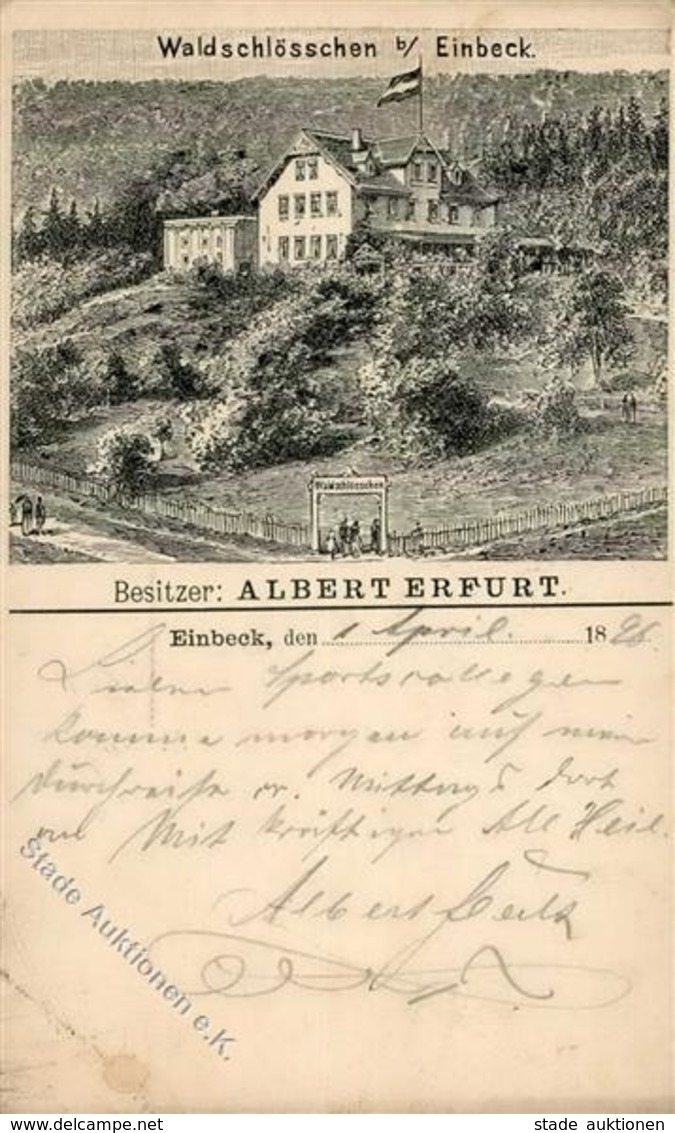 Waldschlösschen b/ Einbeck.
Waldschlösschen
Besitzer: ALBERT ERFURT.
Einbeck, den 1 April. 1896.
Lieben Sportscollegen
komme morgen auf meiner
Durchreise cr. Mittags dort
an Mit kräftigen All Heil.
Albert
Stade Auktionen e.K.
www.delcampe.net
stade auktionen